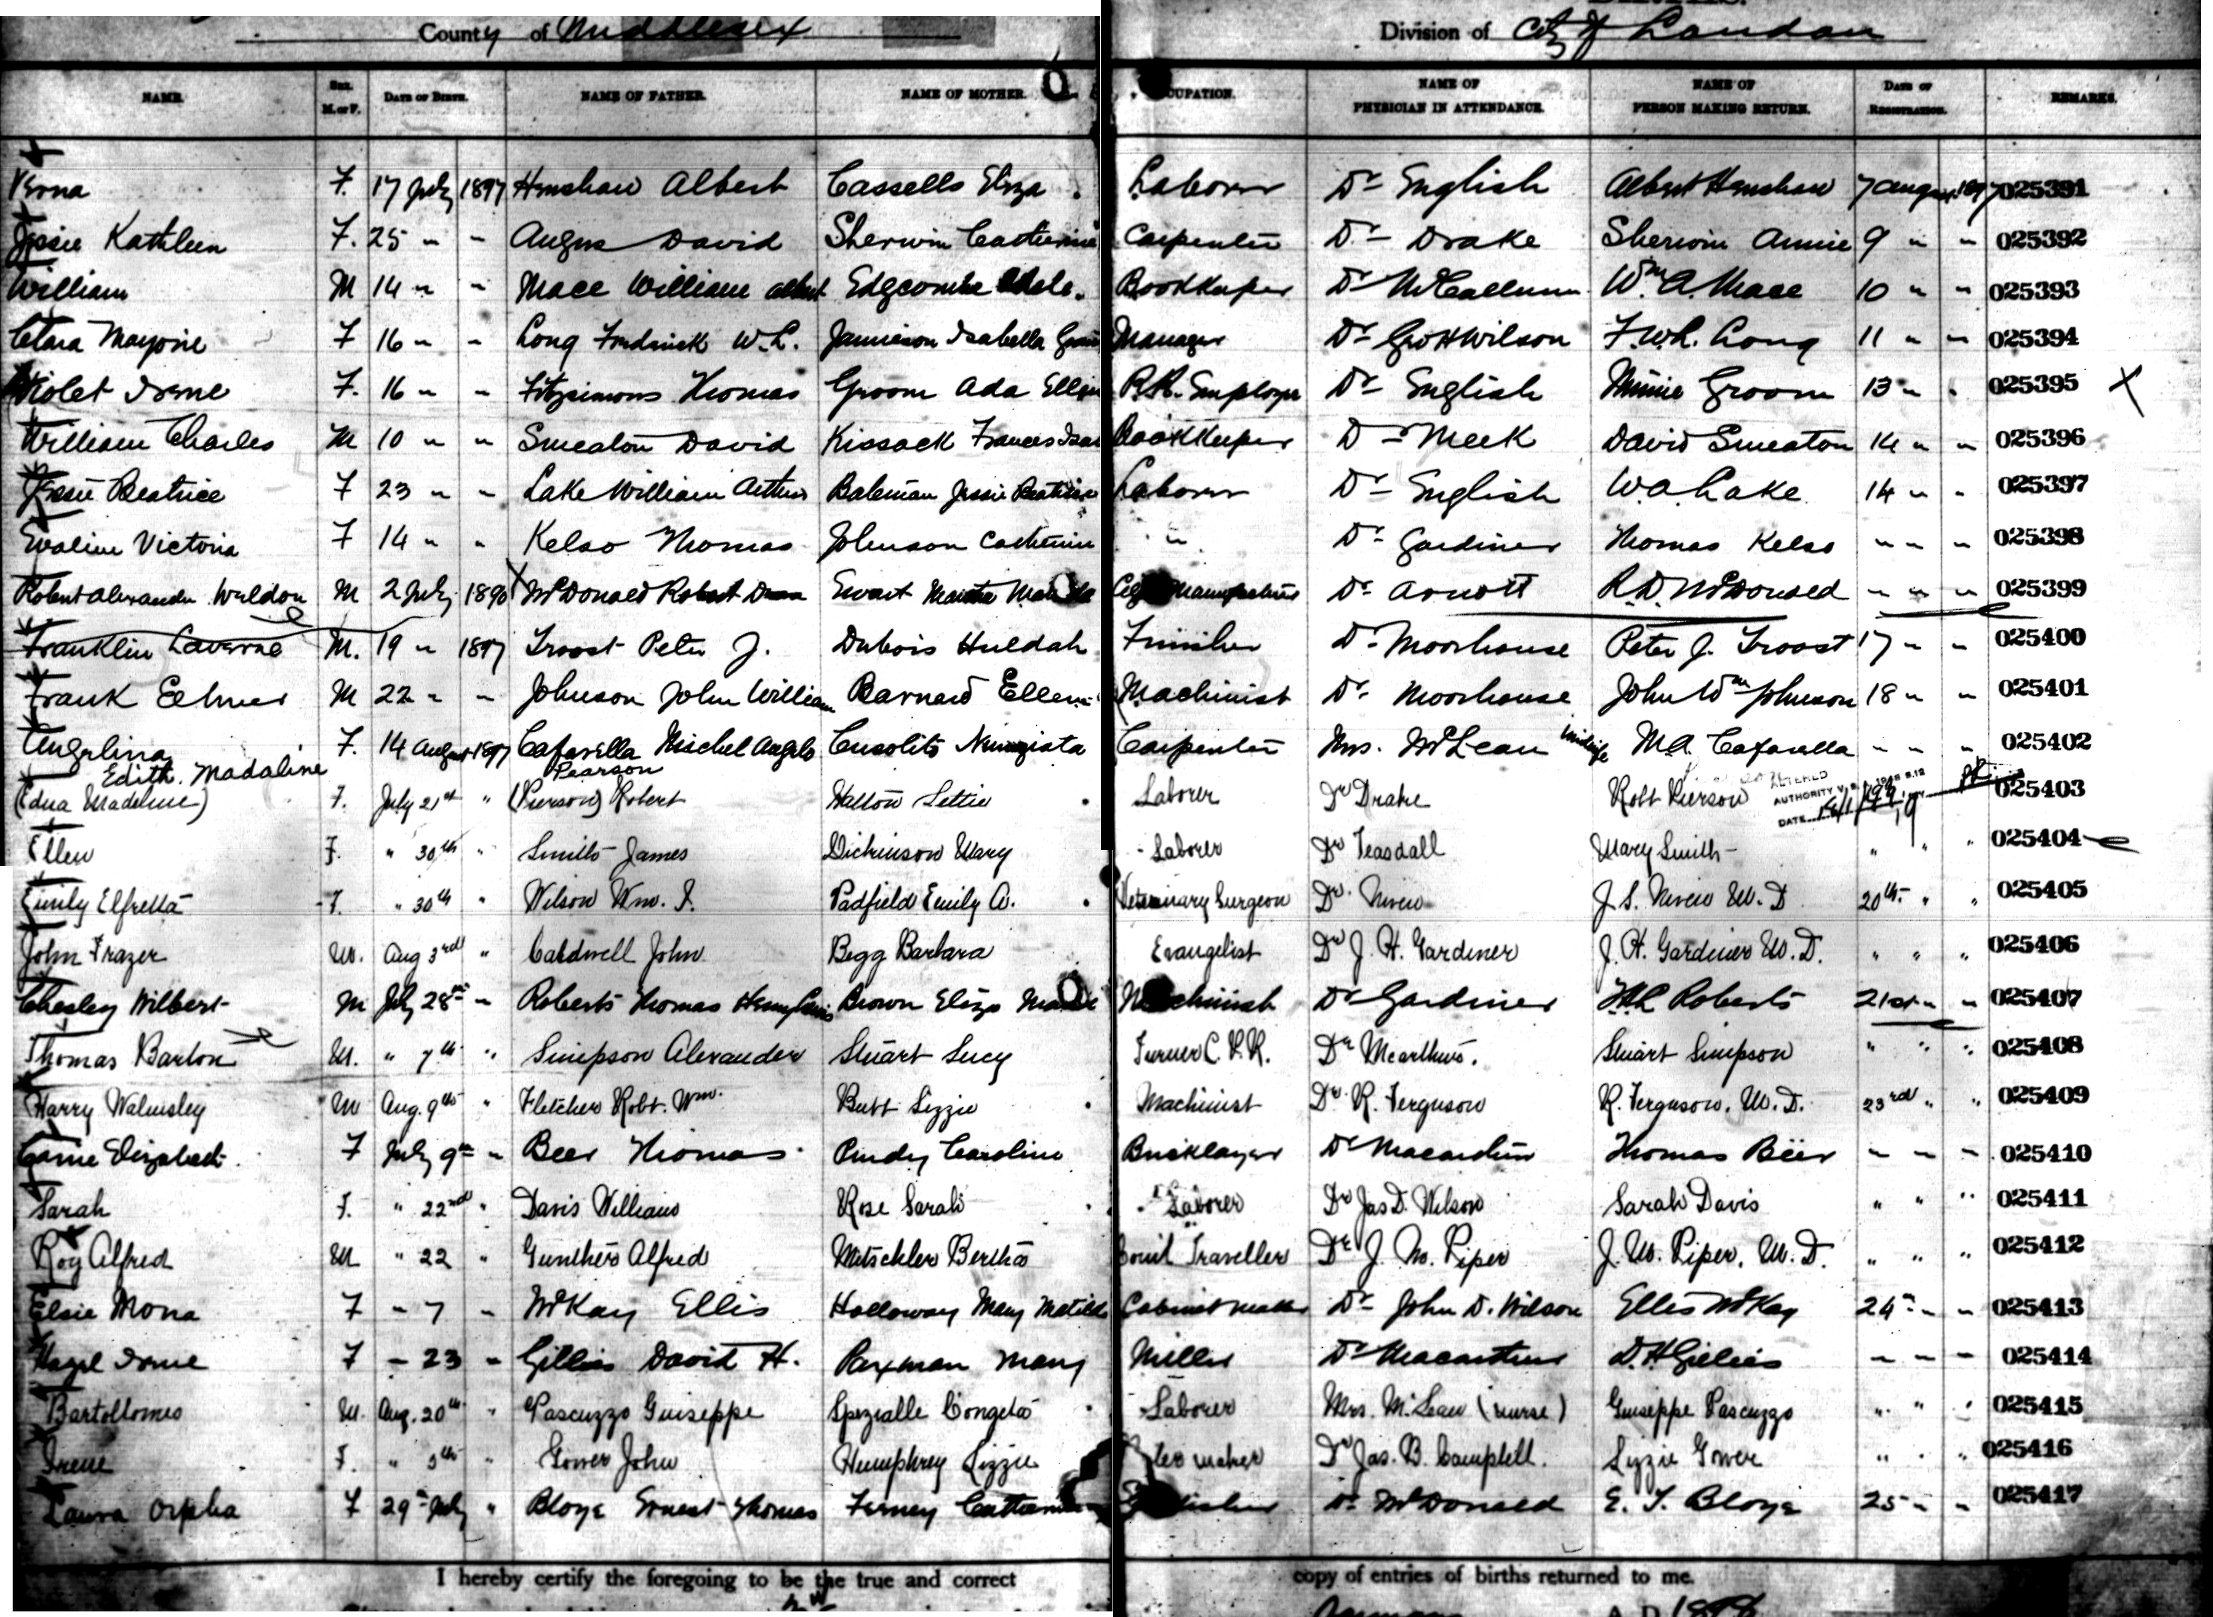 County of Middlesex Division of City of London
NAME. SEX. M. or F. DATE OF BIRTH. NAME OF FATHER. NAME OF MOTHER. OCCUPATION. NAME OF PHYSICIAN IN ATTENDANCE. NAME OF PERSON MAKING RETURN. DATE OF REGISTRATION. REMARKS.
F. 17 July 1897 Henshaw Albert Cassells Eliza Laborer Dr English Albert Henshaw 7 August 1897 025391
Jessie Kathleen F. 25 " " Angus David Sherwin Catherine Carpenter Dr Drake Sherwin Annie 9 " " 025392
William M 14 " " Mace William Albert Edgcombe Adele. Bookkeeper Dr McCallum Wm A. Mace 10 " " 025393
Clara Marjorie F 16 " " Long Fredrick W. L. Jamieson Isabella Manager Dr Geo H Wilson F. W. L. Long 11 " " 025394
Violet Irene F. 16 " " Fitzsimons Thomas Groom Ada Ellen R.R. Employee Dr English Minnie Groom 13 " " 025395 X
William Charles M 10 " " Smeaton David Kissack Frances Bookkeeper Dr Meek David Smeaton 14 " " 025396
Jessie Beatrice F 23 " " Lake William Arthur Bateman Jessie Beatrice Laborer Dr English W. A. Lake 14 " " 025397
Evaline Victoria F 14 " " Kelso Thomas Johnson Catherine " Dr Gardiner Thomas Kelso " " " 025398
Robert Alexander Weldon M 2 July 1896 X McDonald Robert Ewart Martha Manufacturer Dr Arnott R. D. McDonald " " " 025399
Franklin Laverne M. 19 " 1897 Troost Peter J. Dubois Huldah Finisher Dr Moorhouse Peter J. Troost 17 " " 025400
Frank Elmer M 22 " " Johnson John William Barnard Ellen Machinist Dr Moorhouse John Wm Johnson 18 " " 025401
Angelina F. 14 August 1897 Cafarella Michel Angelo Cusolito Nunziata Carpenter Mrs. McLean Midwife M. A. Cafarella " " " 025402
Edith Madaline Pearson
(Edna Madeline) F. July 21st " (Pierson) Robert Walton Lettie Laborer Dr Drake Robt Pierson ALTERED AUTHORITY DATE 025403
Ellen F. " 30th " Smith James Dickinson Mary Laborer Dr Teasdall Mary Smith " " " 025404
Emily Elfretta F. " 30th " Wilson Wm. J. Padfield Emily A. Veterinary Surgeon Dr. Niven J. S. Niven M. D 20th " " 025405
John Frazer M. Aug 3rd " Caldwell John Begg Barbara Evangelist Dr J. H. Gardiner J. H. Gardiner M. D. " " " 025406
Chesley Wilbert M July 28th " Roberts Thomas Henry Brown Eliza Machinist Dr Gardiner Roberts 21st " " 025407
Thomas Barton M. " 7th " Simpson Alexander Stuart Lucy Turner C. P. R. Dr McArthur. Stuart Simpson " " " 025408
Harry Walmsley M Aug. 9th " Fletcher Robt. Wm. Butt Lizzie Machinist Dr R. Ferguson R. Ferguson, M. D. 23rd " " 025409
Carrie Elizabeth F July 9th " Beer Thomas Pindy Caroline Bricklayer Dr Macarthur Thomas Beer " " " 025410
Sarah F. " 22nd " Davis William Rose Sarah Laborer Dr Jas D. Wilson Sarah Davis " " " 025411
Roy Alfred M " 22 " Gunther Alfred Mitschler Bertha Coml Traveller Dr J. M. Piper J. M. Piper, M. D. " " " 025412
Elsie Mona F " 7 " McKay Ellis Holloway Mary Matilda Cabinet maker Dr John D. Wilson Ellis McKay 24th " " 025413
Hazel Irene F " 23 " Gillies David H. Paxman Mary Miller Dr Macarthur D. H Gillies " " " 025414
Bartollomeo M. Aug. 20th " Pascuzzo Guiseppe Spezialle Congeta Laborer Mrs. McLean (nurse) Guiseppe Pascuzzo " " " 025415
Irene F. " 5th " Gower John Humphrey Lizzie maker Dr Jas. B. Campbell. Lizzie Gower " " " 025416
Laura Orpha F 29th July " Bloye Ernest Thomas Ferney Catherine Dr McDonald E. T. Bloye 25 " " 025417
I hereby certify the foregoing to be the true and correct copy of entries of births returned to me.
A. D. 1898